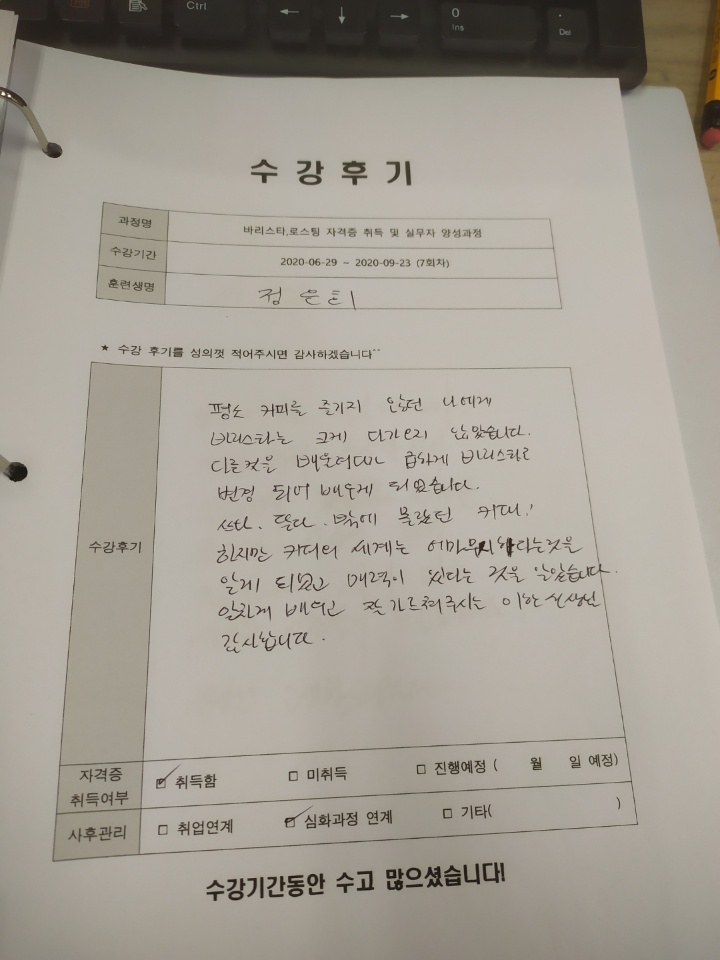 Ctrl
←
↓
→
0
Ins
.
Del
수 강 후 기
과정명 바리스타,로스팅 자격증 취득 및 실무자 양성과정
수강기간 2020-06-29 ~ 2020-09-23 (7회차)
훈련생명 정 은희
★ 수강 후기를 성의껏 적어주시면 감사하겠습니다^^
수강후기
평소 커피를 즐기지 않던 나에게
바리스타는 크게 다가오지 않았습니다.
다른것을 배우려다 급하게 바리스타로
변경 되어 배우게 되었습니다.
쓰다. 달다. 밖에 몰랐던 커피!
하지만 커피의 세계는 어마무시하다는것을
알게 되었고 매력이 있다는 것을 알았습니다.
알차게 배우고 잘 가르쳐주시는 이한 선생님
감사합니다.
자격증 취득여부 ☑ 취득함 □ 미취득 □ 진행예정 ( 월 일 예정)
사후관리 □ 취업연계 ☑ 심화과정 연계 □ 기타( )
수강기간동안 수고 많으셨습니다!